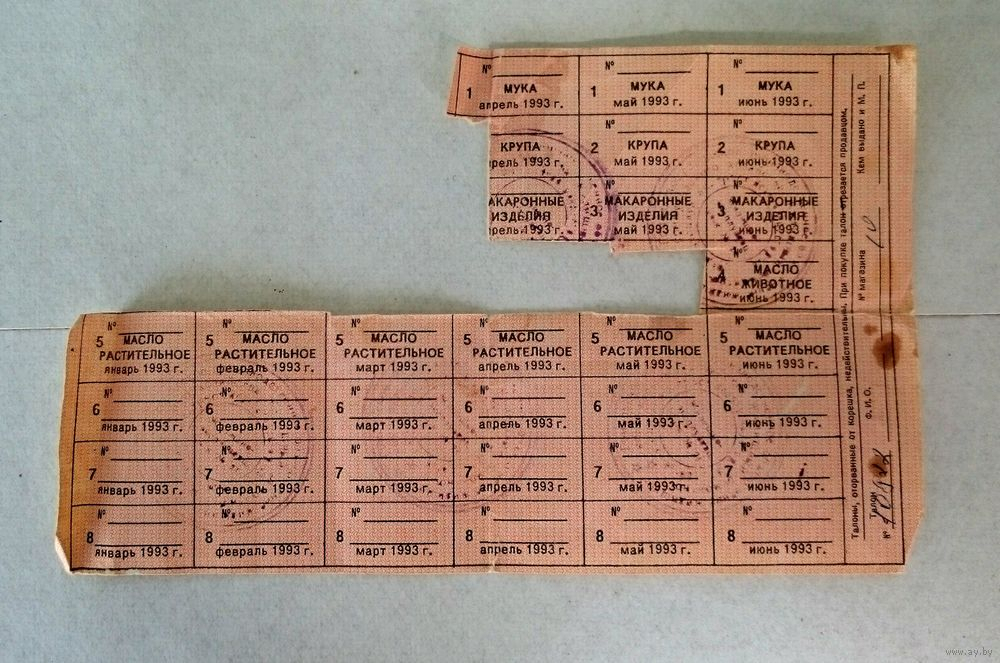 № № №
1 МУКА 1 МУКА 1 МУКА
апрель 1993 г. май 1993 г. июнь 1993 г.
№ №
КРУПА 2 КРУПА 2 КРУПА
рель 1993 г. май 1993 г. июнь 1993 г.
№ №
АКАРОННЫЕ 3 МАКАРОННЫЕ 3 МАКАРОННЫЕ
ИЗДЕЛИЯ ИЗДЕЛИЯ ИЗДЕЛИЯ
рель 1993 г. май 1993 г. июнь 1993 г.
№
4 МАСЛО
ЖИВОТНОЕ
июнь 1993 г.
№ № № № № №
5 МАСЛО 5 МАСЛО 5 МАСЛО 5 МАСЛО 5 МАСЛО 5 МАСЛО
РАСТИТЕЛЬНОЕ РАСТИТЕЛЬНОЕ РАСТИТЕЛЬНОЕ РАСТИТЕЛЬНОЕ РАСТИТЕЛЬНОЕ РАСТИТЕЛЬНОЕ
январь 1993 г. февраль 1993 г. март 1993 г. апрель 1993 г. май 1993 г. июнь 1993 г.
№ № № № № №
6 6 6 6 6 6
январь 1993 г. февраль 1993 г. март 1993 г. апрель 1993 г. май 1993 г. июнь 1993 г.
№ № № № № №
7 7 7 7 7 7
январь 1993 г. февраль 1993 г. март 1993 г. апрель 1993 г. май 1993 г. июнь 1993 г.
№ № № № № №
8 8 8 8 8 8
январь 1993 г. февраль 1993 г. март 1993 г. апрель 1993 г. май 1993 г. июнь 1993 г.
Талоны, оторванные от корешка, недействительны. При покупке талон отрезается продавцом.
Ф. И. О. № магазина 10 Кем выдано и М. П.
№
www.ay.by